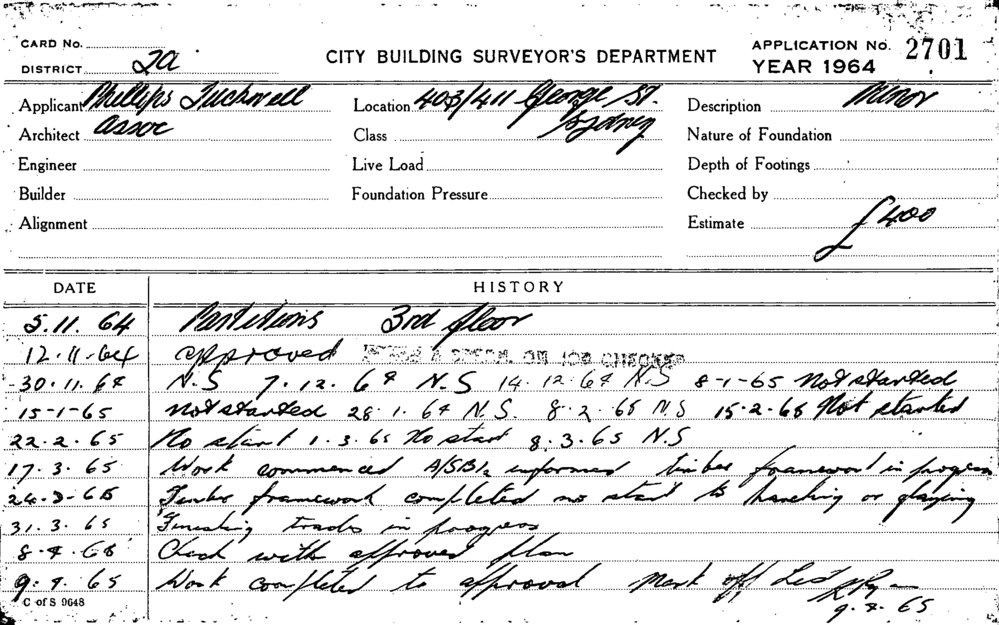 CARD No.
DISTRICT 2a
CITY BUILDING SURVEYOR'S DEPARTMENT
APPLICATION No. 2701
YEAR 1964
Applicant Phillips Tuckwell
Location 403/411 George St.
Description Minor
Architect Assoc
Class Sydney
Nature of Foundation
Engineer
Live Load
Depth of Footings
Builder
Foundation Pressure
Checked by
Alignment
Estimate £400
DATE HISTORY
5.11.64 Partitions 3rd floor
12.11.64 approved ON JOB CHECKED
30.11.64 N.S 7.12.64 N.S 14.12.64 N.S 8-1-65 Not started
15-1-65 not started 28.1.64 N.S. 8.2.65 N.S 15.2.65 Not started
22.2.65 No start 1.3.65 No start 8.3.65 N.S
17.3.65 Work commenced informed timber framework in progress
24-3-65 Timber framework completed no start to panelling or glazing
31.3.65 Finishing trades in progress
8.4.65 Check with approved plan
9.4.65 Work completed to approval mark off List
9.4.65
C of S 9648